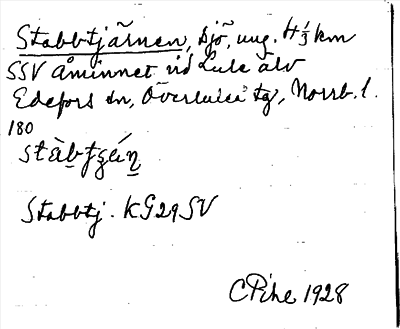 Stabbtjärnen, sjö, ung. 4⅓ km
SSV Åminnet vid Lule älv
Edefors sn, Överluleå tg, Norrb. l.
180
stàb̲tʒǽn̲
Stabbtj. KG29SV
CPihe 1928